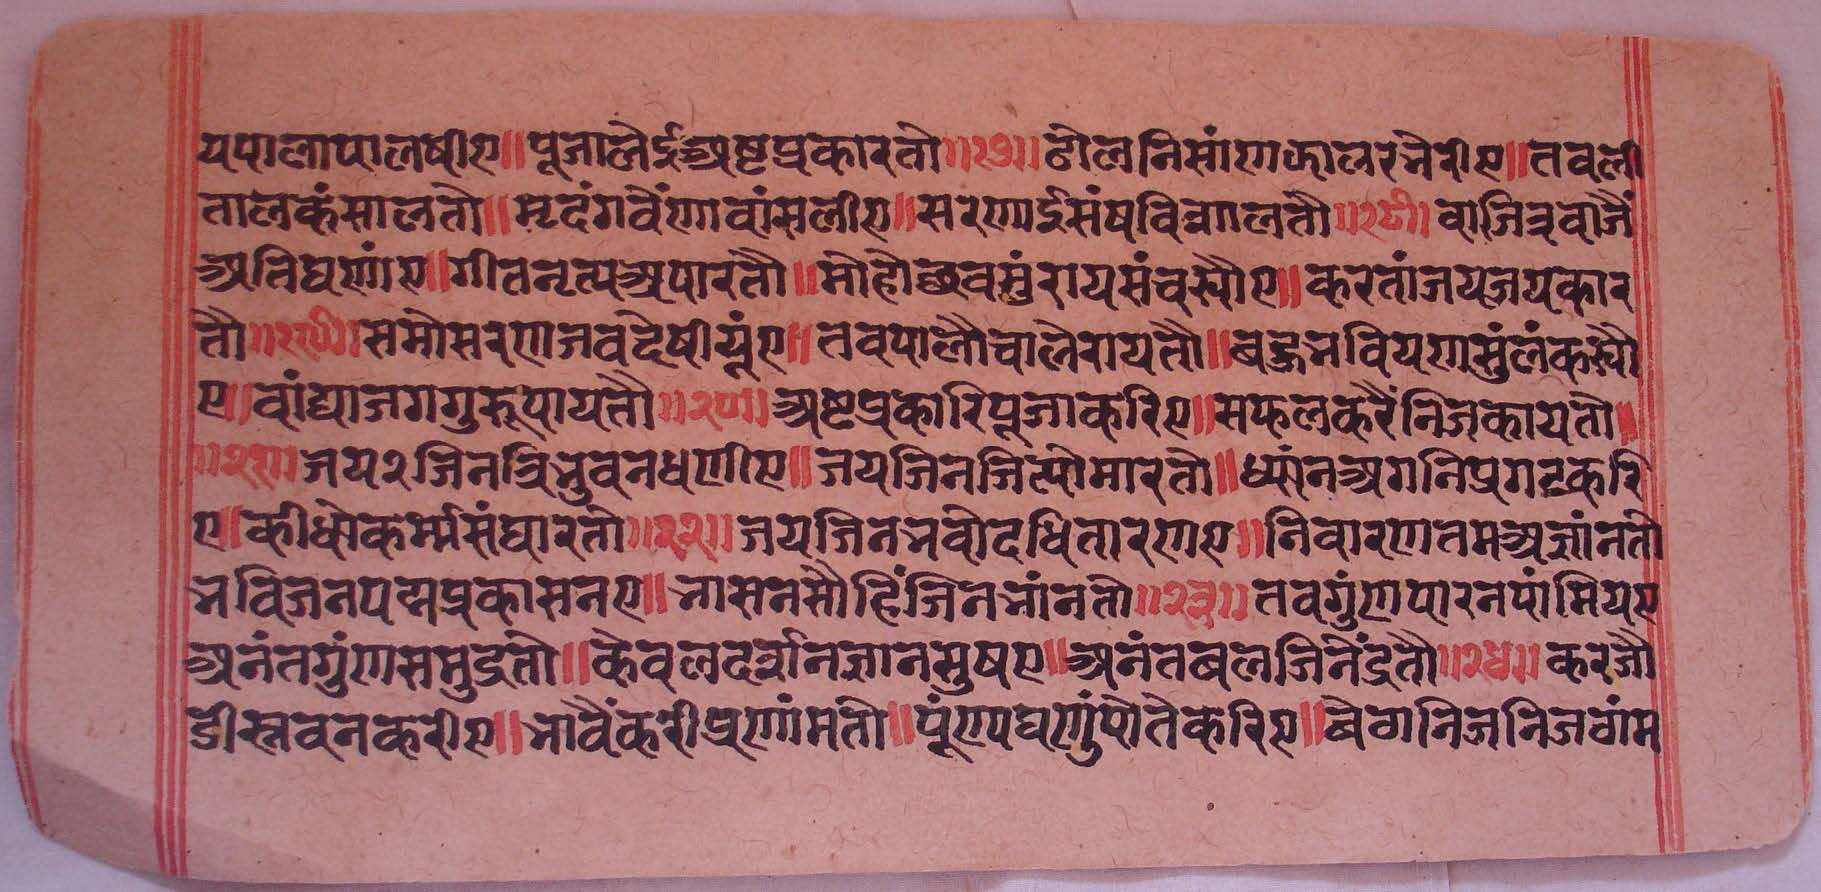 यपालापालषीए॥ पूजालेईअष्टप्रकारतो॥१७॥ ढोलनिसांणझालरभेरीए॥ तवली
तालकंसालतो॥ मृदंगवैंणवांसलीए॥ सरणाईसंषविशालतौ॥१८॥ वाजित्रवाजैं
अतिघणांए॥ गीतनृत्यअपारतौ॥ मोहोछवसुंरायसंचर्यौए॥ करतांजयजयकार
तौ॥१९॥ समोसरणजवदेषीयूंए॥ तवपालौचालेरायतौ॥ बहुभवियणसुंलंकर्यौ
ए॥ वांद्याजगगुरूपायतौ॥२०॥ अष्टप्रकारिपूजाकरिए॥ सफलकरैंनिजकायतो॥
॥२१॥ जय२जिनत्रिभुवनधणीए॥ जयजिनजित्योमारतो॥ ध्यांनअगनिप्रगटकरि
ए॥ कीधोकर्म्मसंघारतो॥२२॥ जयजिनभवोदधितारणए॥ निवारणतमअज्ञांनतो
भविजनपद्मप्रकासनए॥ भासनसौहिंजिनभांनतो॥२३॥ तवगुंणपारनपांमियए
अनंतगुंणसमुद्रतो॥ केवलदर्शनज्ञानसुषए॥ अनंतबलजिनेंद्रतौ॥२४॥ करजौ
डीस्तवनकरीए॥ भावैंकरीप्रणांमतो॥ पूंण्यघणुंपोतेकरिए॥ बैठानिजनिजठांम